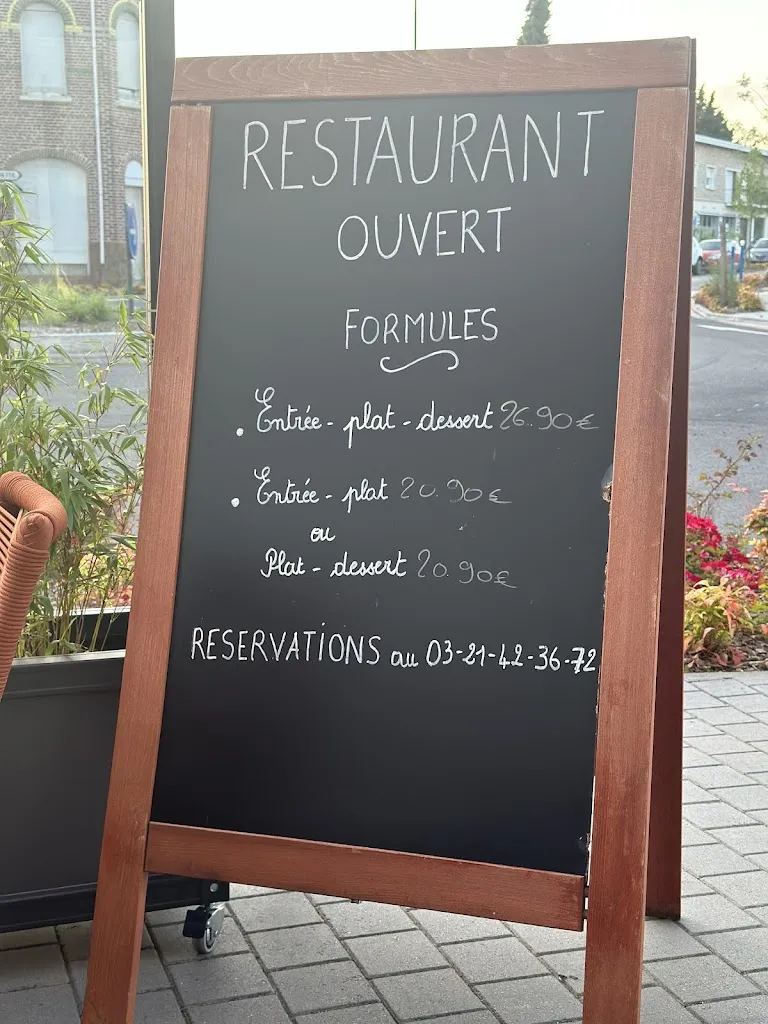 RESTAURANT
OUVERT
FORMULES
. Entrée - plat - dessert 26.90€
. Entrée - plat 20.90€
ou
Plat - dessert 20.90€
RESERVATIONS au 03-21-42-36-72